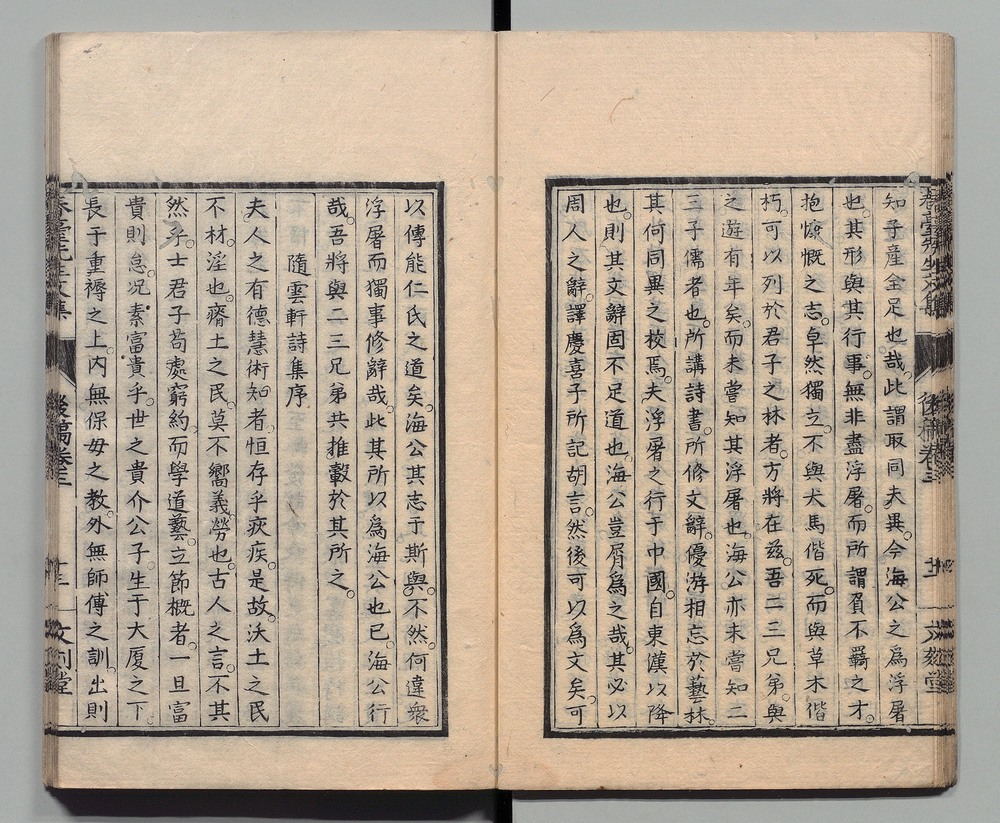 知予產全足也哉此謂取同夫異今海公之爲浮屠
也其形與其行事無非盡浮屠而所謂負不羈之才
抱慷慨之志卓然獨立不與犬馬偕死而與草木偕
朽可以列於君子之林者方將在兹吾二三兄弟與
之遊有年矣而未嘗知其浮屠也海公亦未嘗知二
三子儒者也所講詩書所修文辭優游相忘於藝林
其何同異之校焉夫浮屠之行于中國自東漢以降
也則其文辭固不足道也海公豈屑爲之哉其必以
周人之辭譯慶喜子所記胡言然後可以爲文矣可
以傳能仁氏之道矣海公其志于斯與不然何違衆
浮屠而獨事修辭哉此其所以爲海公也已海公行
哉吾將與二三兄弟共推轂於其所之
隨雲軒詩集序
夫人之有德慧術知者恒存乎疢疾是故沃土之民
不材淫也瘠土之民莫不嚮義勞也古人之言不其
然乎士君子苟處窮約而學道藝立節概者一旦富
貴則怠况素富貴乎世之貴介公子生于大厦之下
長于重褥之上內無保毋之教外無師傅之訓出則
後稿卷三